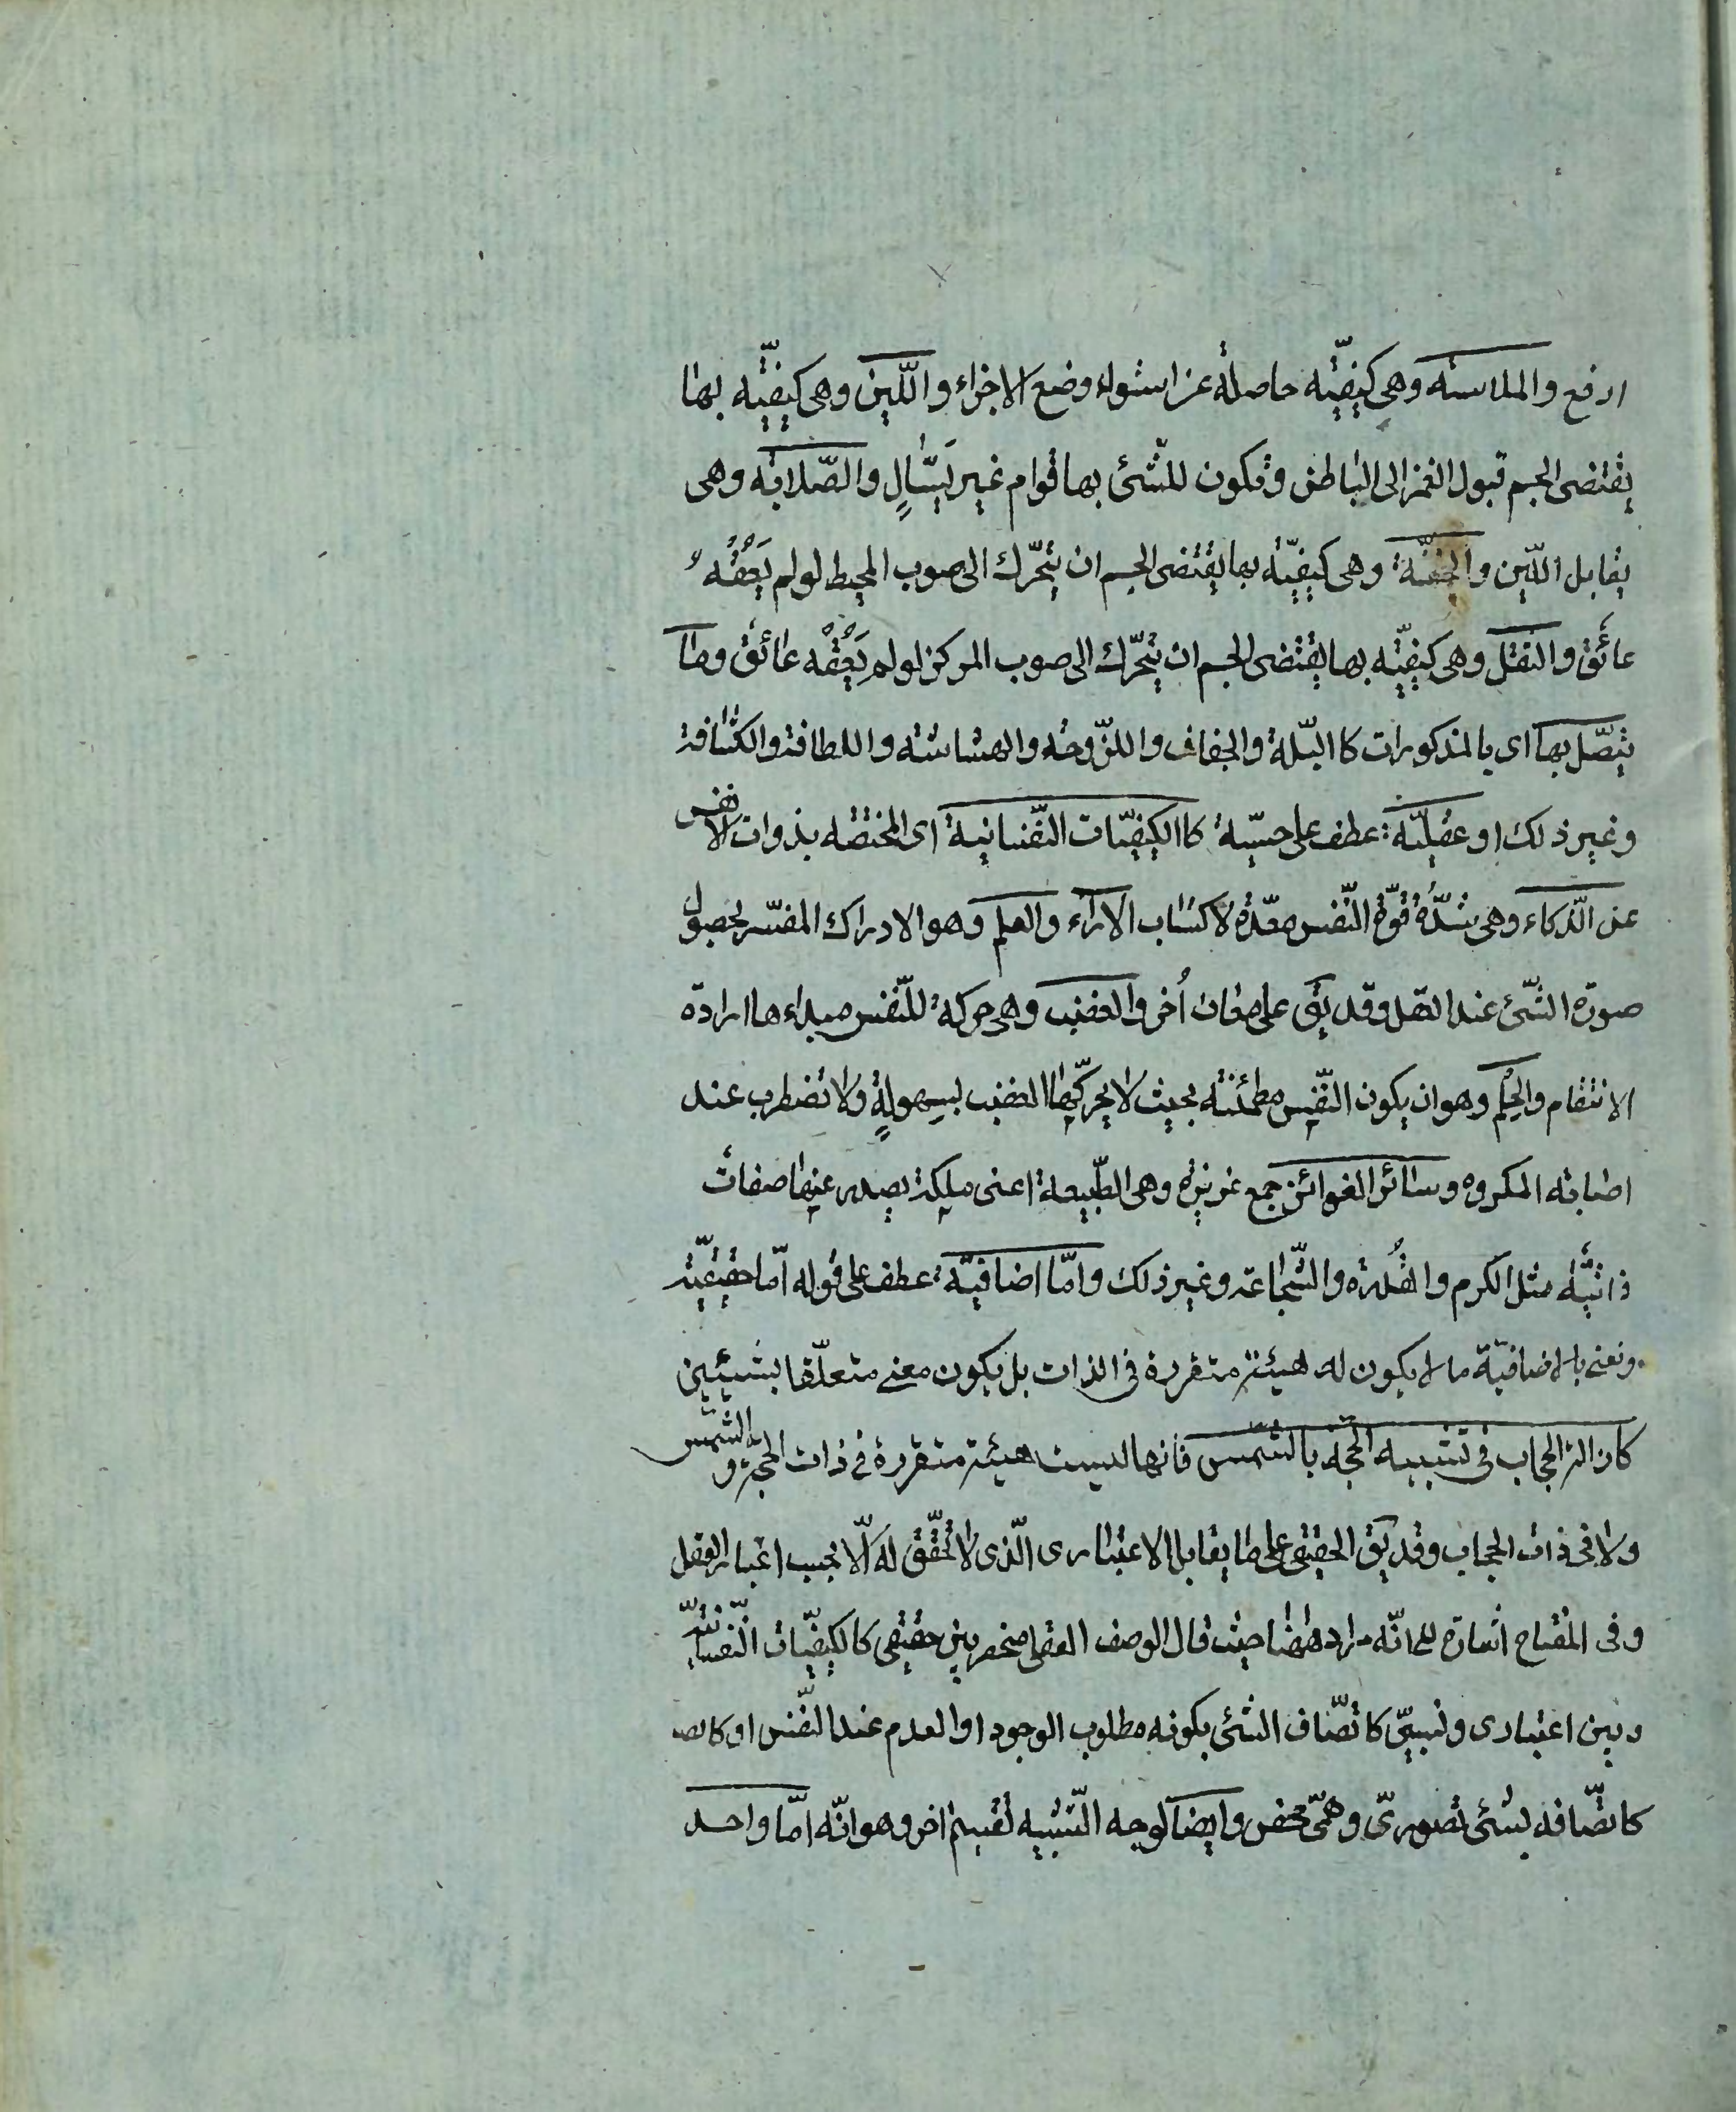 ارفع والملاسته وهى كيفيّته حاصلة عن استواء وضع الاجزاء واللّين وهى كيفيّته بها
يقتضى الجسم قبول الغمز الى الباطن وتكون للشّئ بها قوام غير سَيّالٍ والصّلابة وهى
يقابل اللّين والخفّة وهى كيفيّة بها يقتضى الجسم ان يتحّرك الى صوب المحيط لو لم يَعُقْهُ
عائق والثقل وهى كيفيّته بها يقتضى الجسم ان يتحّرك الى صوب المركز لو لم يَعُقْه عائق وما
يتصّل بها اى بالمذكورات كا البّلة والجفاف واللزّوجة والهشاشته واللطافة والكثافة
وغير ذلك او عقليّة عطف على حسيّة كا الكيفيّات النّفسانية اى المختصّه بذوات الانفس
عن الذّكاء وهى شدّة قوّة النّفس معّدة لاكتساب الآراء والعلم وهو الادراك المفسّر بحصول
صورة الشّئ عند العقل وقد يق على معان أُخر والغضب وهى حركة للنّفس مبداءها ارادة
الانتقام والحِلم وهو ان يكون النّفس مطمئنته بحيث لا يحركّها الغضب بسهولةٍ ولا تضطرب عند
اصابة المكروه وسائر الغرائز جمع غريزة وهى الطّبيعة اعنى ملكة يصدر عنها صفات
ذاتيّة مثل الكرم والقُدرة والشّجاعة وغير ذلك وامّا اضافيّة عطف على قوله امّا حقيقيّة
ونعنى بالاضافيّة ما لا يكون له هيئة متقررة فى الذات بل يكون معنى متعلّقا بشيئين
كازالة الحجاب فى تشبيه الحجّة بالشّمس فانها ليست هيئة متقررة فى ذات الحجّة و الشّمس
ولا فى ذات الحجاب وقد يق الحقيقى على ما يقابل الاعتبارى الّذى لا تحقّق له الّا بحسب اعتبار العقل
وفى المفتاح اشارة الى انّه مراد ههنا حيث قال الوصف العقلى منحصر بين حقيقى كالكيفيّات النّفسانيّة
وبين اعتبارى ونسبىّ كاتصّاف الشئ بكونه مطلوب الوجود او العدم عند النّفس او كاتصـ
كاتصّافه بشئ تصورىّ وهمّى محض وايضا لوجه التّشبيه تقسيم اخر وهو انّه امّا واحد